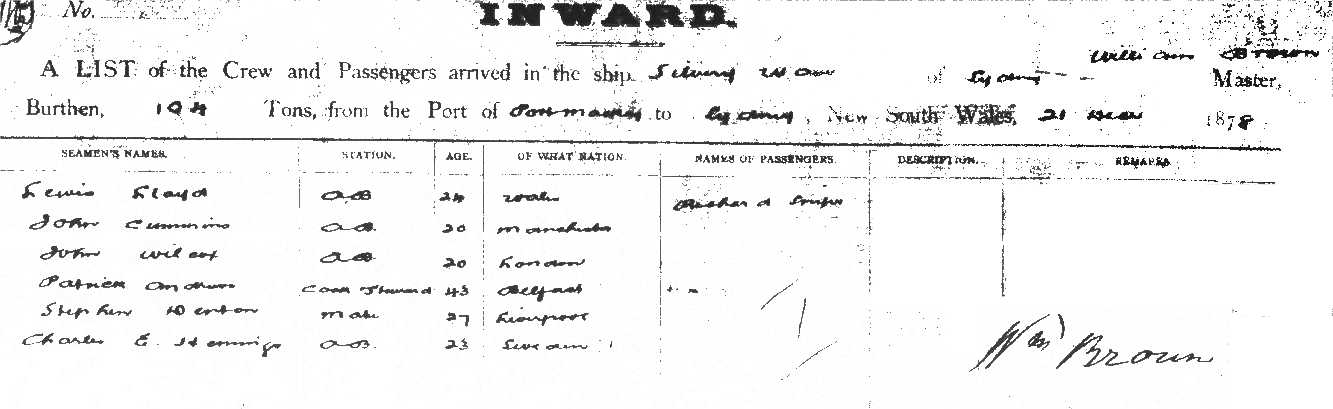 No.
INWARD.
William Brown
A LIST of the Crew and Passengers arrived in the ship Silvery Wave of Sydney Master,
Burthen, 194 Tons, from the Port of to Sydney, New South Wales, 21 1878
SEAMEN'S NAMES. STATION. AGE. OF WHAT NATION. NAMES OF PASSENGERS. DESCRIPTION. REMARKS
Lewis Lloyd AB 24 Wales Richard
John Cummins AB 20 Manchester
John Wilcox AB 20 London
Patrick Andrews Cook Steward 43 Belfast
Stephen Denton Mate 27 Liverpool
Charles E. Hennings AB. 23 Sweden
Wm Brown